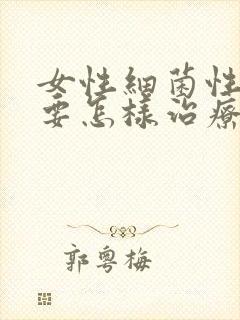 女性細菌性
要怎樣治療
郭粵梅